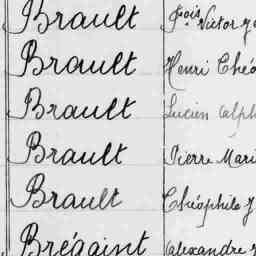 Brault fois Victor
Brault Henri Théo
Brault Lucien Alph
Brault Pierre Mari
Brault Théophile J
Brégaint Alexandre